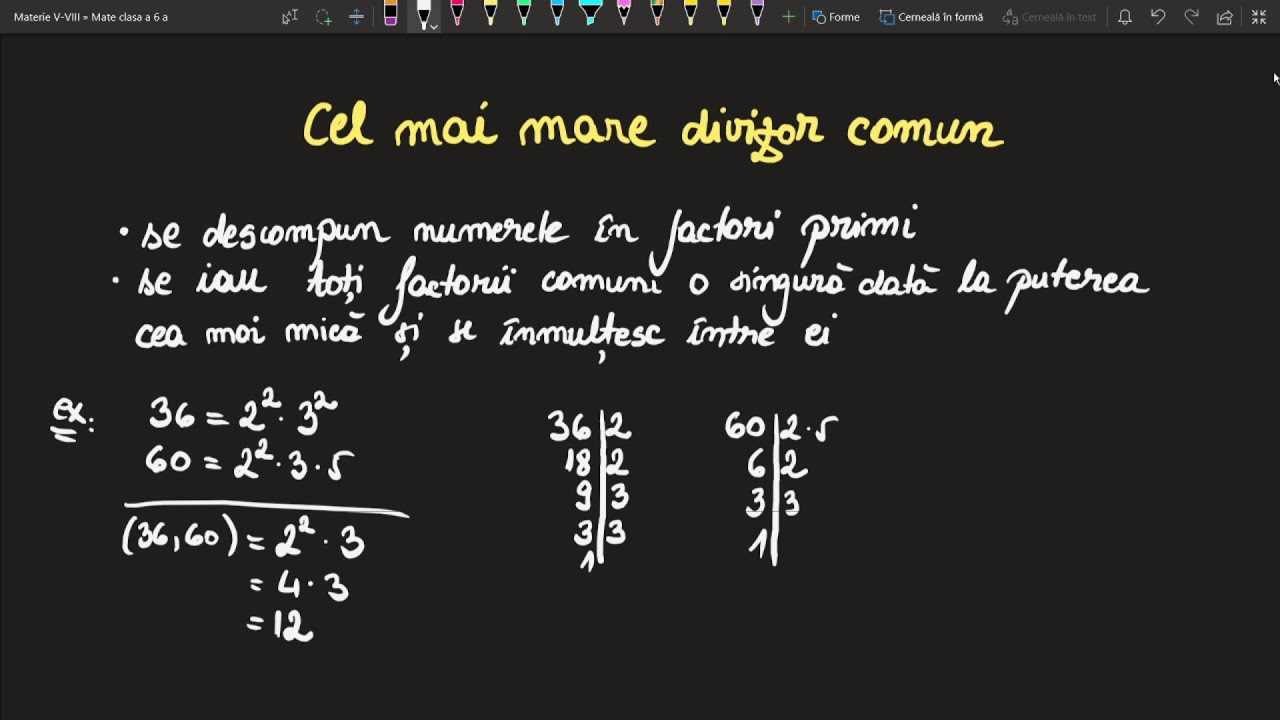 Materie V-VIII » Mate clasa a 6 a
Forme
Cerneală în formă
Cerneală în text
Cel mai mare divizor comun
• se descompun numerele în factori primi
• se iau toți factorii comuni o singură dată la puterea
cea mai mică și se înmulțesc între ei
ex:
36 = 2² · 3²
60 = 2² · 3 · 5
(36, 60) = 2² · 3
= 4 · 3
= 12
36 | 2
18 | 2
9 | 3
3 | 3
1
60 | 2 · 5
6 | 2
3 | 3
1